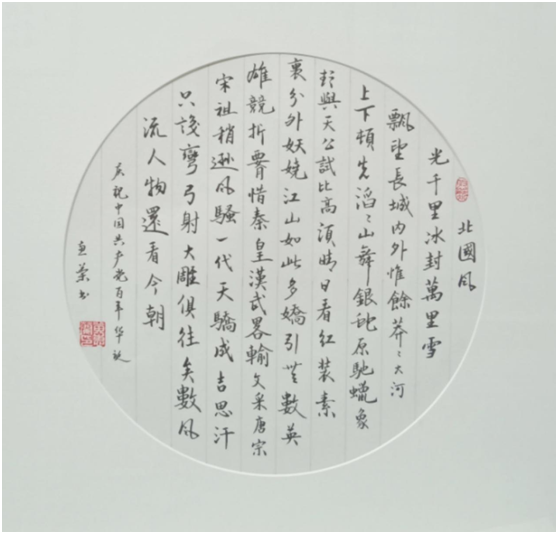 北國風
光千里冰封萬里雪
飄望長城内外惟餘莽〻大河
上下頓失滔〻山舞銀蛇原馳蠟象
欲與天公試比高須晴日看紅裝素
裹分外妖嬈江山如此多嬌引無數英
雄競折腰惜秦皇漢武畧輸文采唐宗
宋祖稍遜風騷一代天驕成吉思汗
只識彎弓射大雕俱往矣數風
流人物還看今朝
庆祝中国共产党百年华诞
书